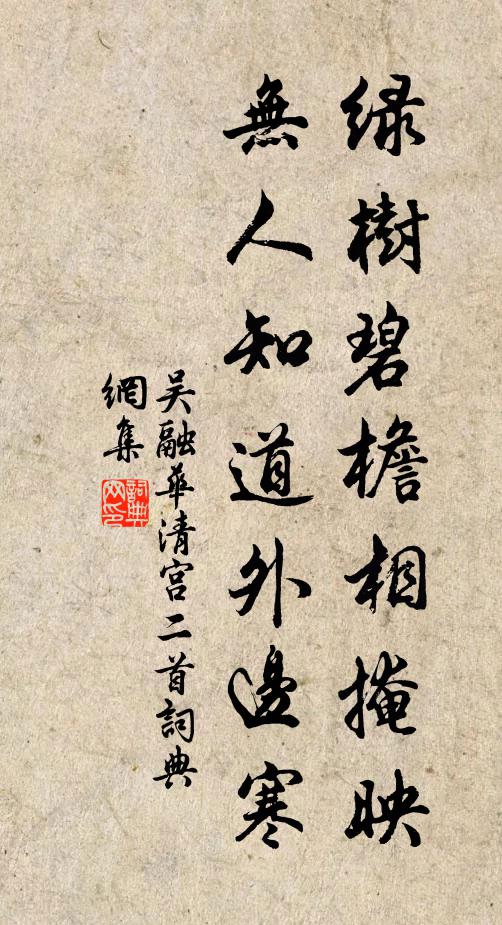 绿樹碧檐相掩映
無人知道外邊寒
吴融華清宫二首詞典
網集
詞典网印